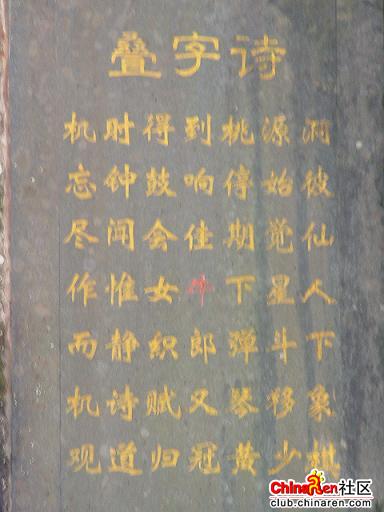 叠字诗
机时得到桃源洞
忘钟鼓响停始彼
尽闻会佳期觉仙
作惟女下星人
而静织郎弹斗下
机诗赋又琴移象
观道归冠黄少棋
ChinaRen社区
club.chinaren.com